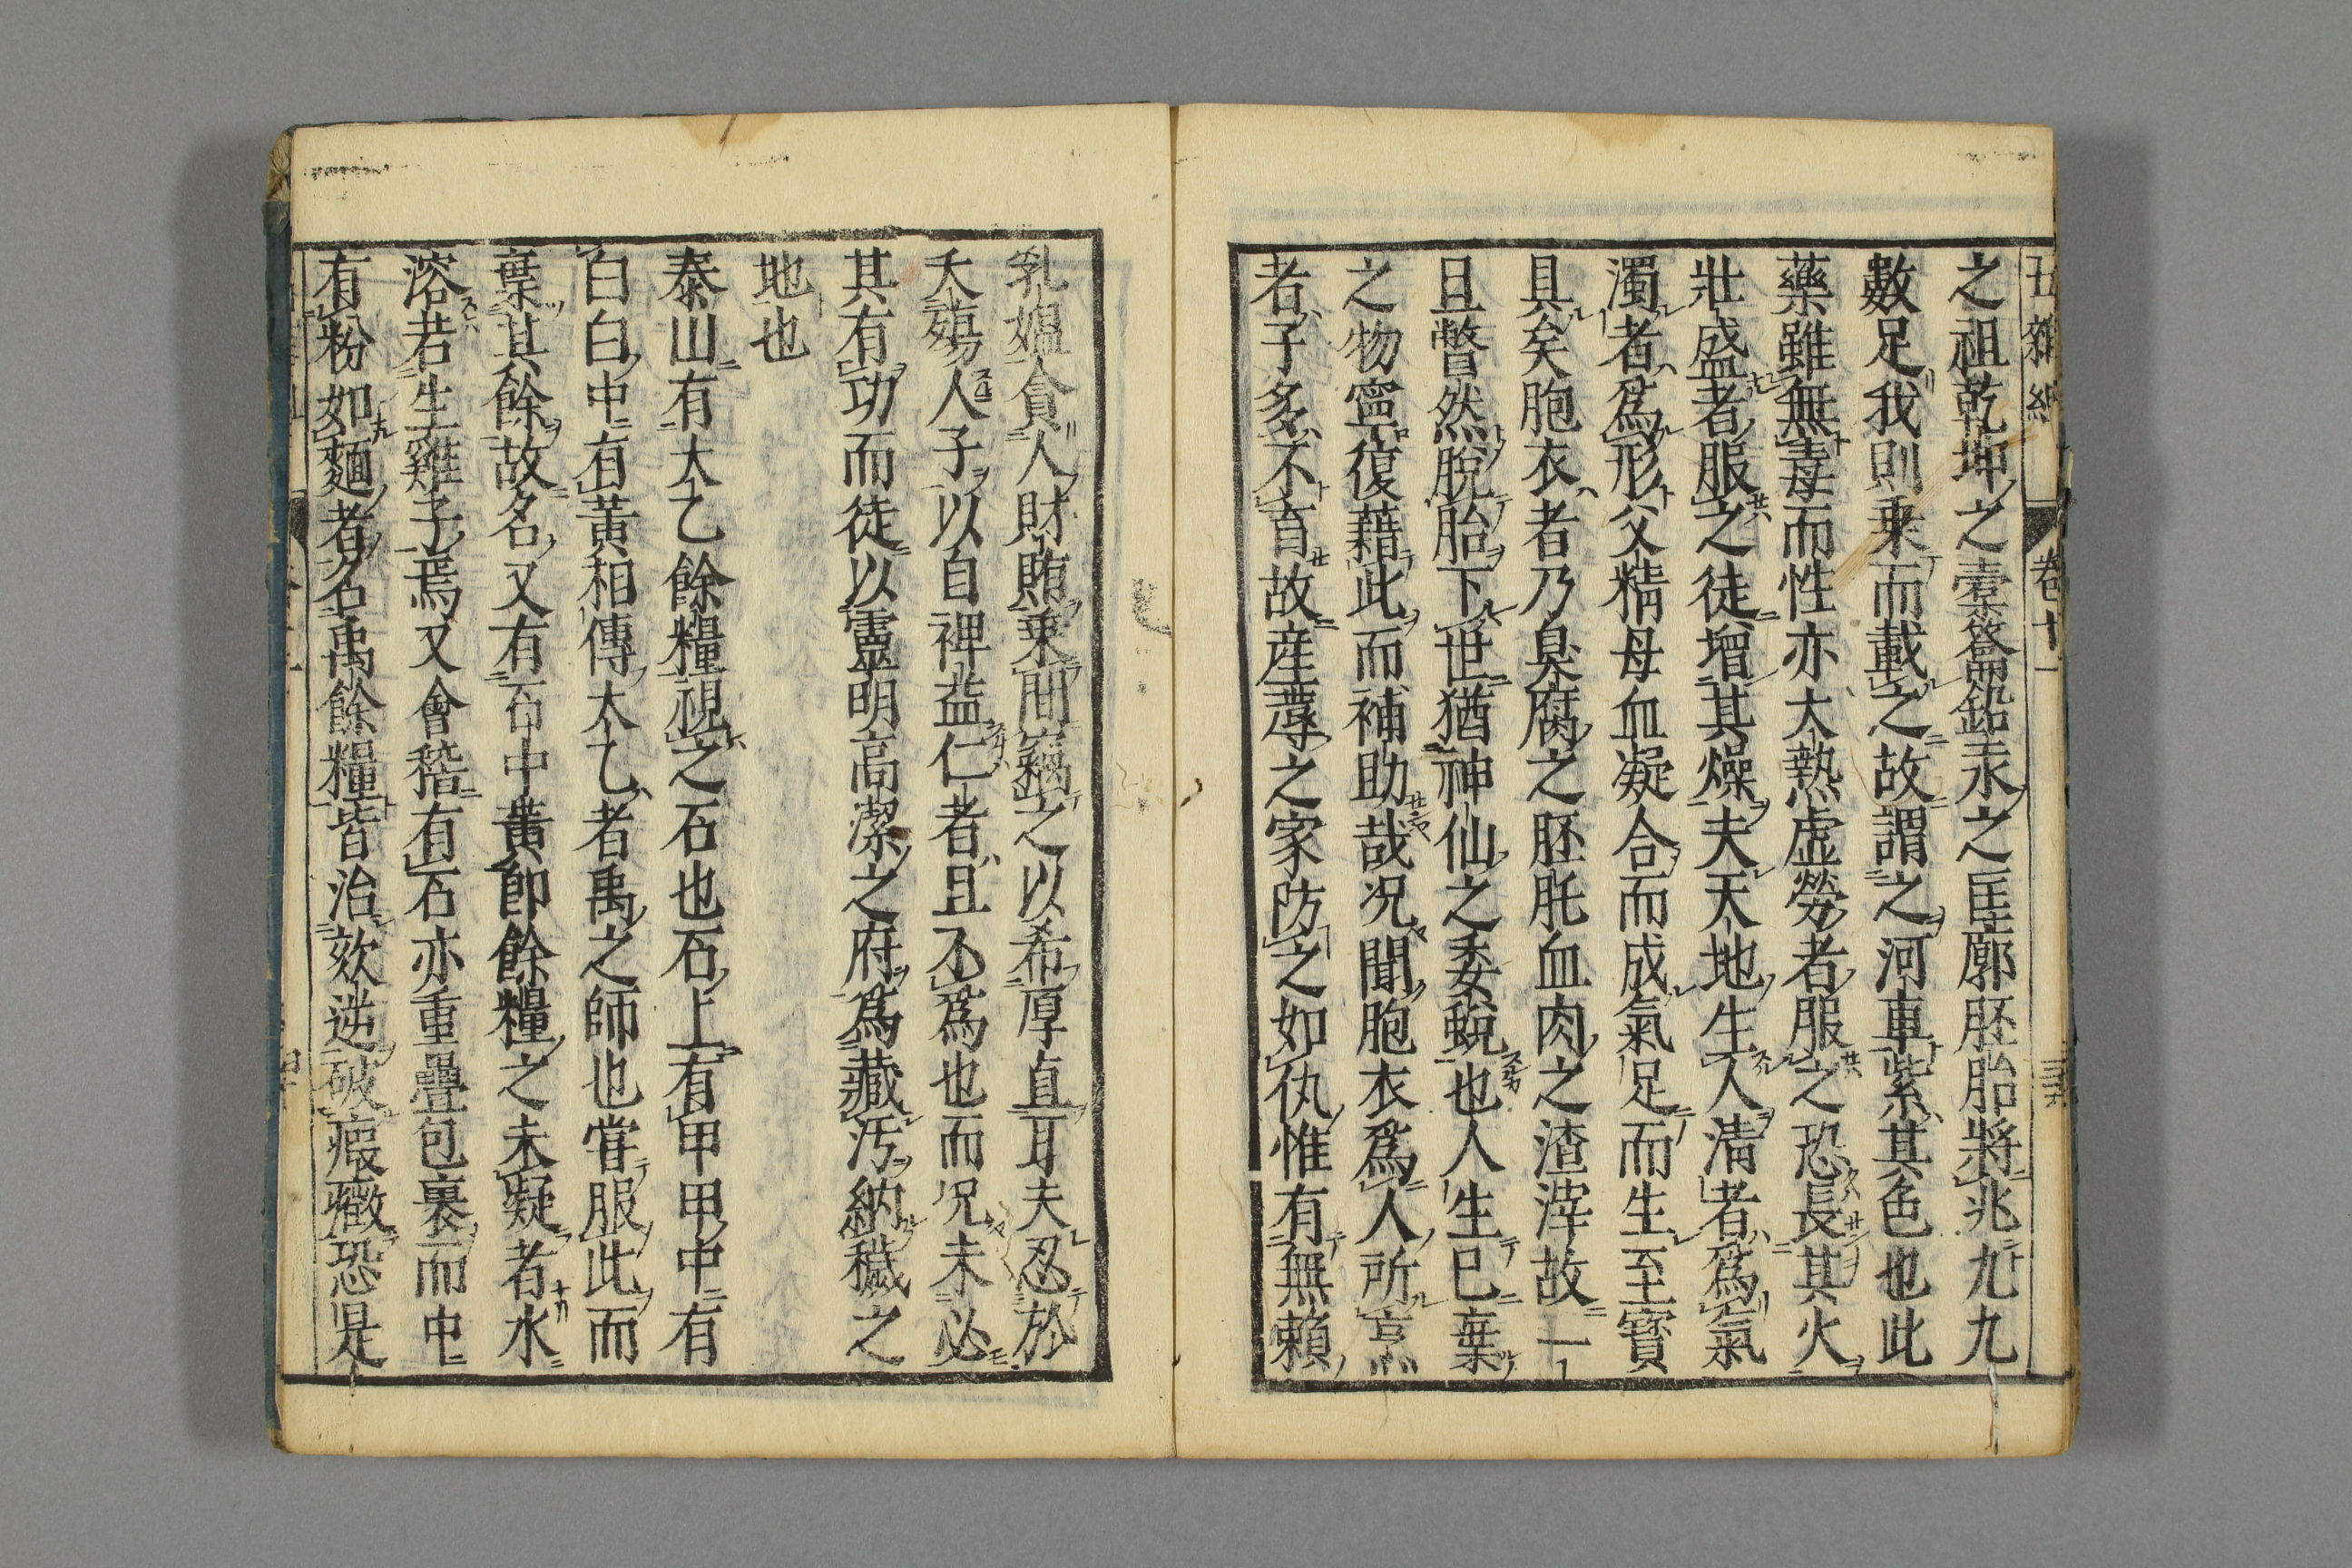 五雜組 卷十一
之祖乾坤之橐籥鉛汞之匡廓胚胎將兆九九
數足我則乗而載之故謂之河車紫其色也此
藥雖無毒而性亦大熱虛勞者服之恐長其火
壯盛者服之徒增其燥夫天地生人淸者爲氣
濁者爲形父精母血凝合而成氣足而生至寳
具矣胞衣者乃臭腐之胚胎血肉之渣滓故一
旦瞥然脫胎下世猶神仙之委蛻也人生巳棄
之物寧復藉此而補助哉況聞胞衣爲人所烹
者子多不育故産蓐之家防之如仇惟有無賴
乳媼貪人財賄乗間竊之以希厚直耳夫忍於
夭殤人子以自裨益仁者且不爲也而況未必
其有功而徒以靈明高潔之府爲藏汚納穢之
地也
泰山有太乙餘糧視之石也石上有甲甲中有
白白中有黃相傳太乙者禹之師也嘗服此而
棄其餘故名又有石中黃卽餘糧之未凝者水
溶若生雞子焉又會稽有石亦重疊包裹而中
有粉如麵者名禹餘糧皆治欬逆破瘕癥恐是